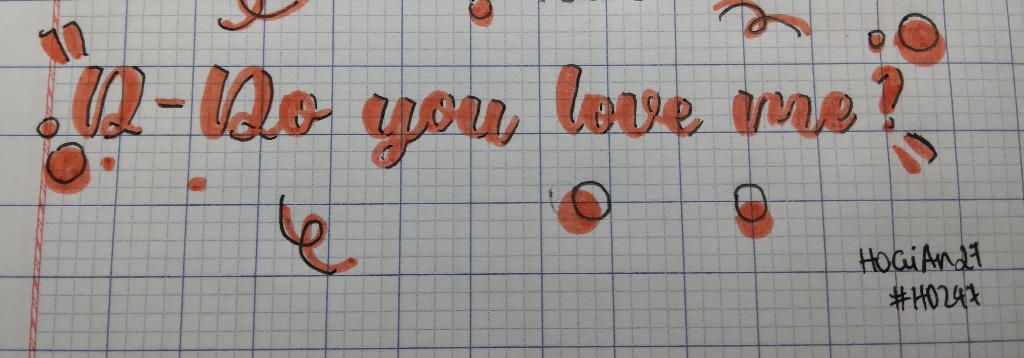 "D-Do you love me?"
HOGiAn27
#H0247